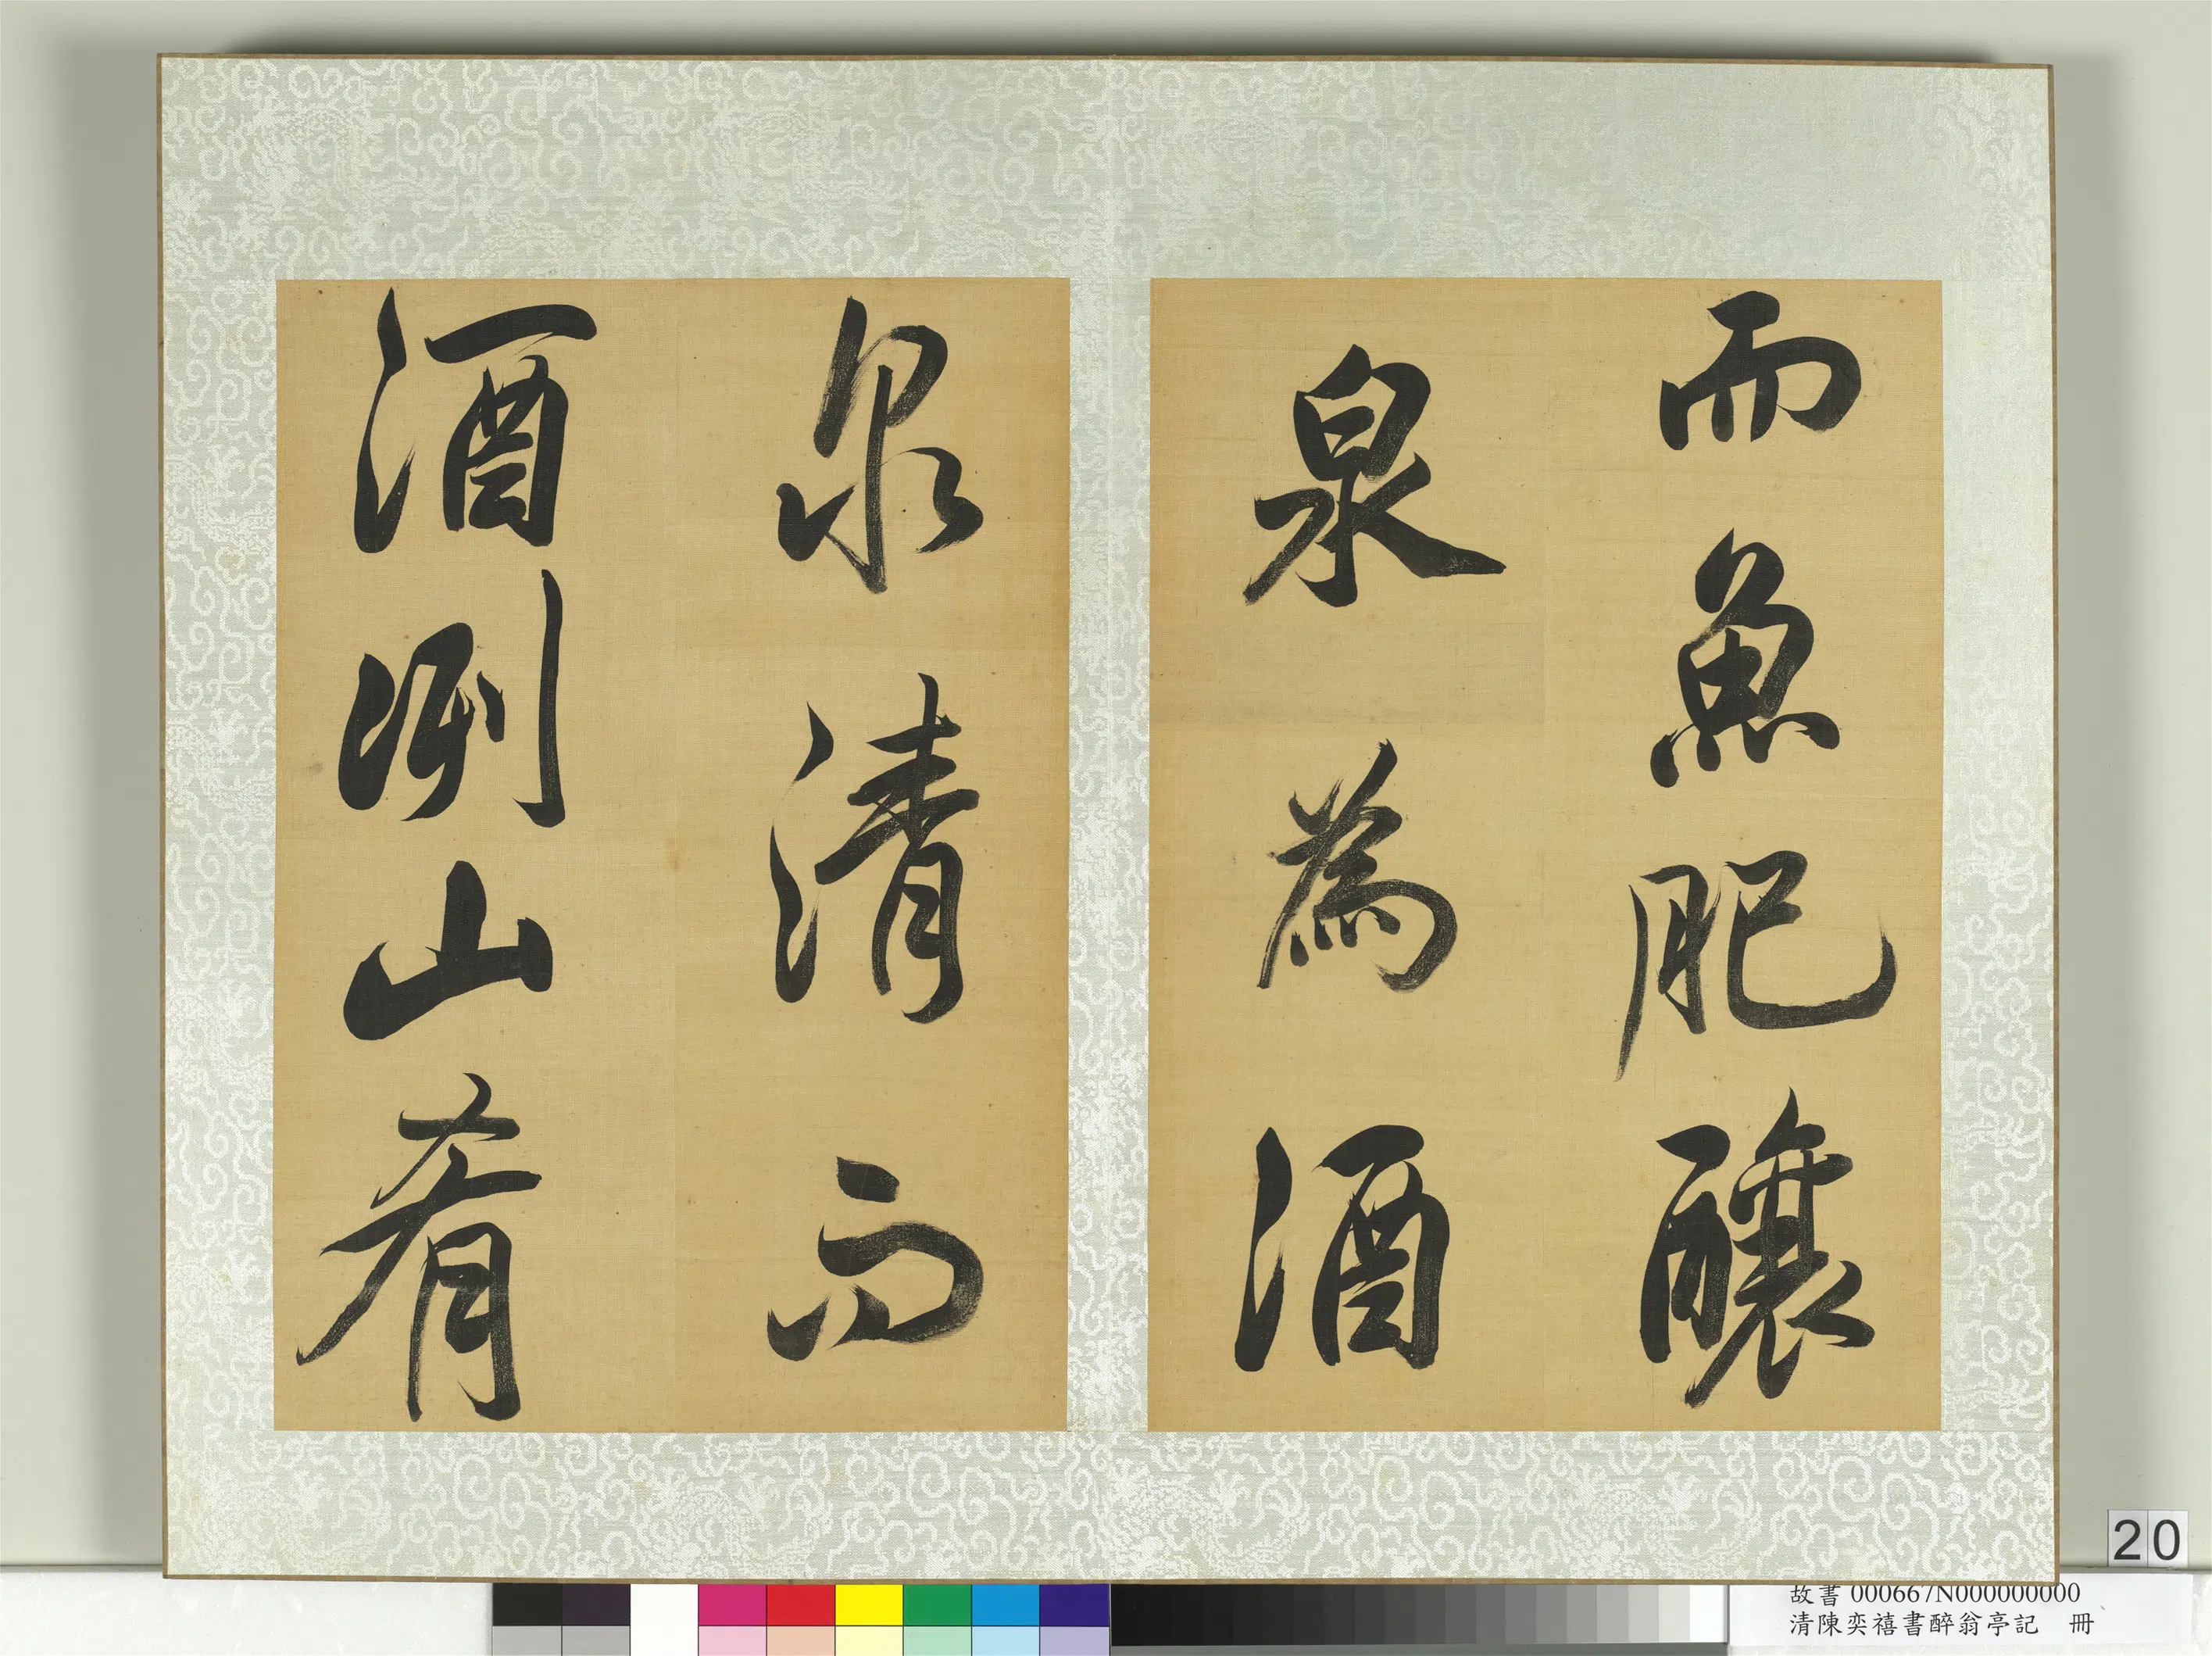 而魚肥釀
泉為酒
泉清而
酒洌山肴
20
故書 000667N000000000
清陳奕禧書醉翁亭記 冊